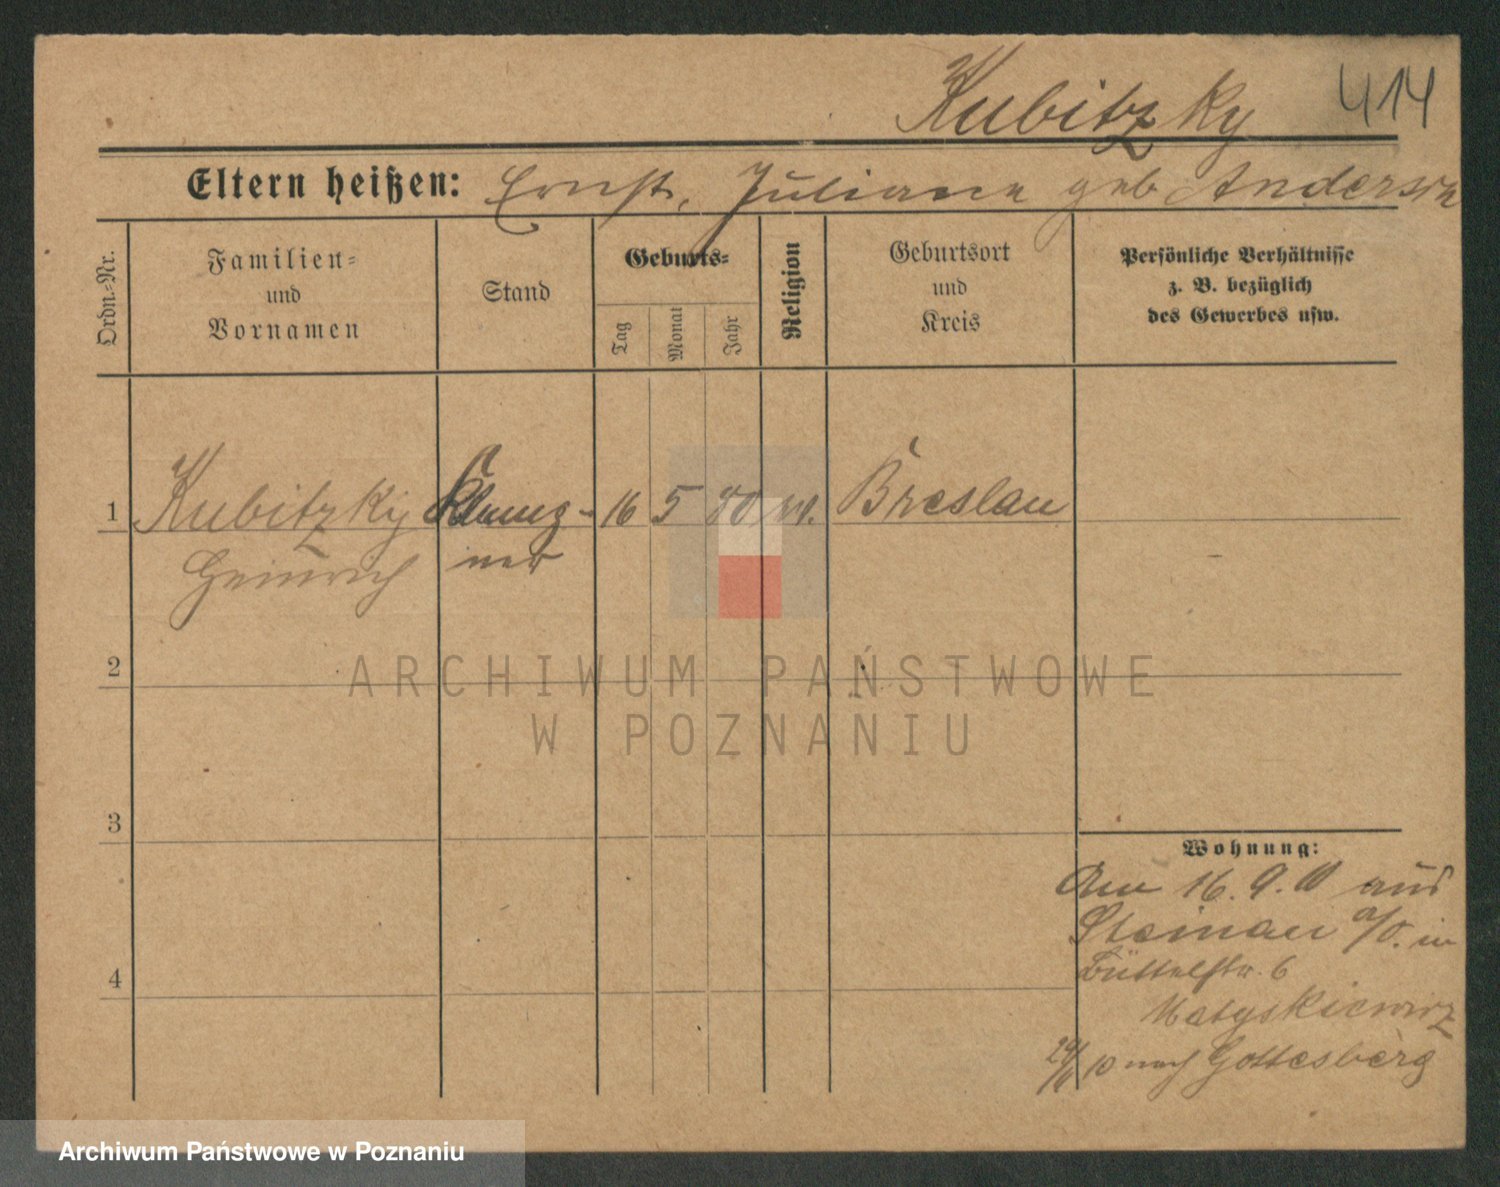 Kubitzky 414
Eltern heißen: Ernst, Juliane geb Anderson
Ordn.-Nr.
Familien-
und
Vornamen
Stand
Geburts-
Tag
Monat
Jahr
Religion
Geburtsort
und
Kreis
Persönliche Verhältnisse
z. B. bezüglich
des Gewerbes usw.
1 Kubitzky 16 5 80 Breslau
Heinrich ner
2
3
4
Wohnung:
Am 16.9.10 aus
Steinau a/O. in
Büttelstr. 6
Matyskiewicz
10 nach Gottesberg
ARCHIWUM PAŃSTWOWE
W POZNANIU
Archiwum Państwowe w Poznaniu